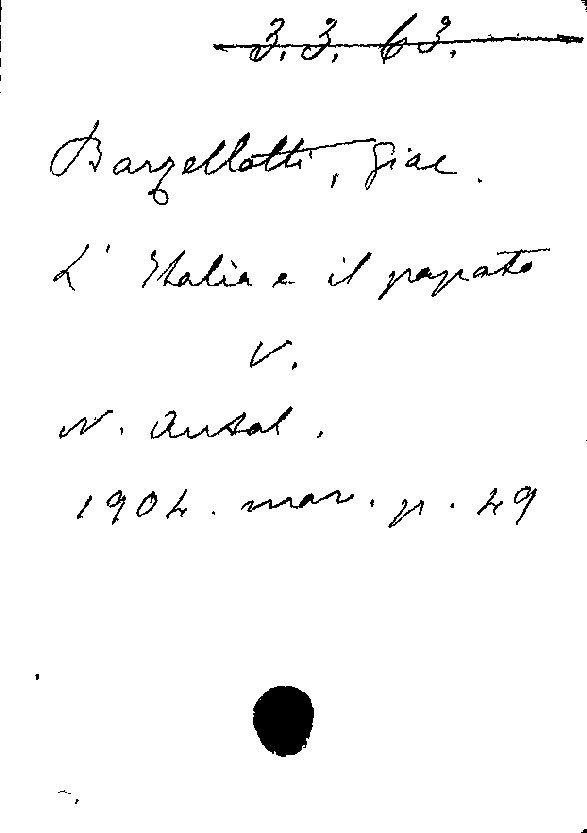 3. 3. 63.
Barzellotti, Giac.
L' Italia e il papato
V.
N. Antol.
1904. mar. p. 49